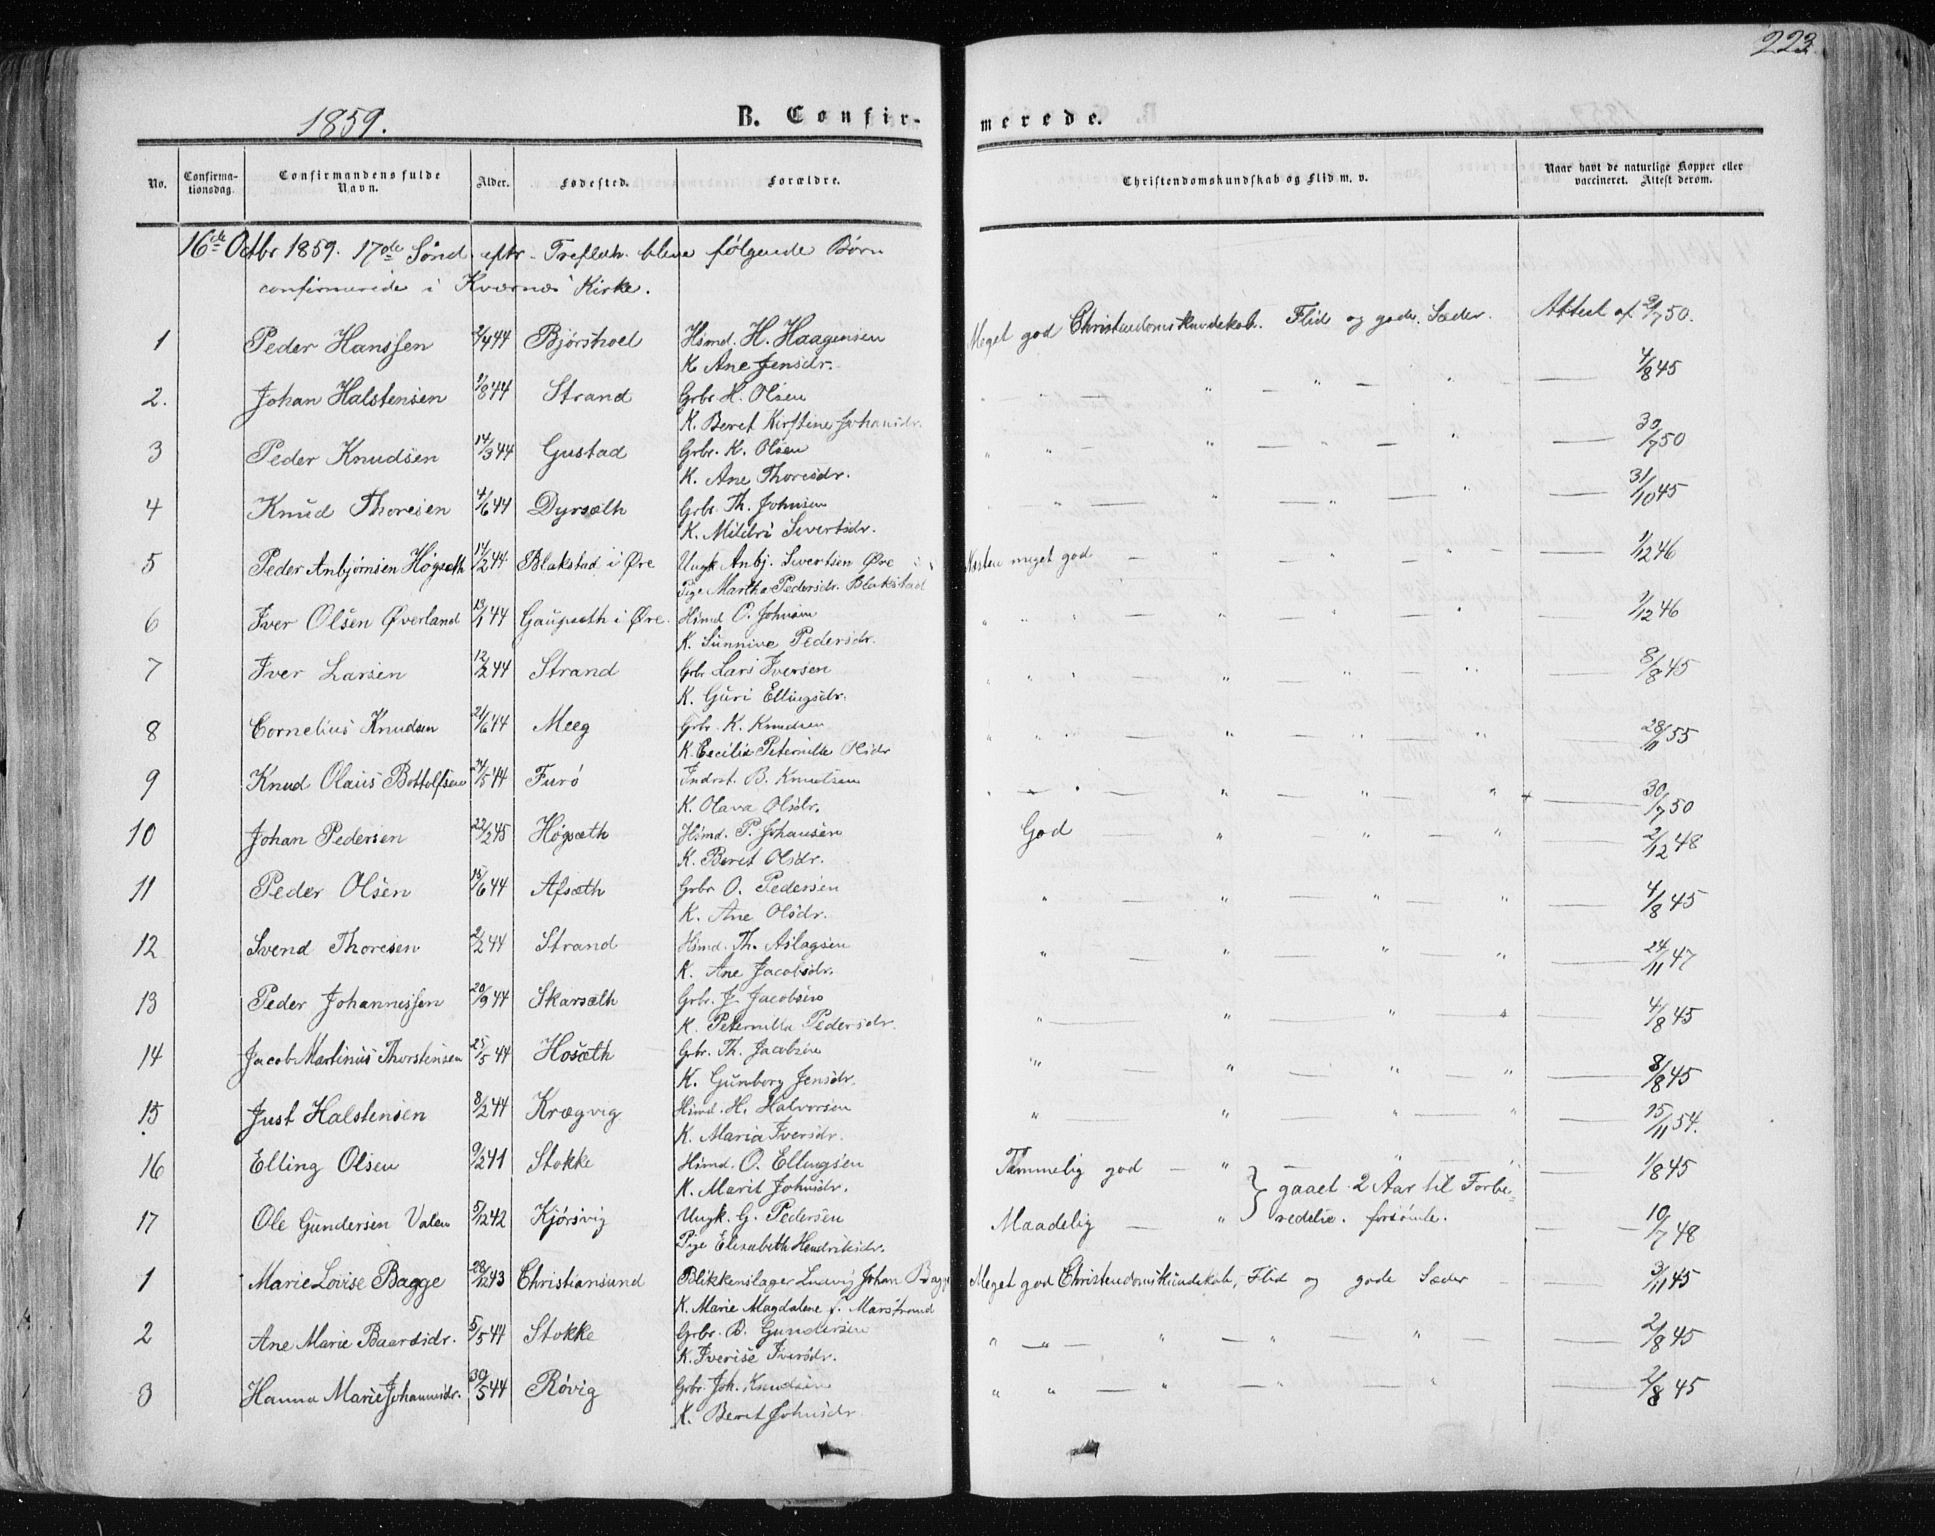 223.
1859. B. Confirmerede.
No. Confirmationsdag. Confirmandens fulde Navn. Alder. Fødested. Forældre. Christendomskundskab og Flid m. v. Naar havt de naturlige Kopper eller vaccineret. Attest derom.
16de Octbr 1859. 17de Sønd. eftr. Trefteh. bleve følgende Børn
confirmerede i Kvernæs Kirke.
1 Peder Hanssen 2/4 44 Bjørshoel Hsmd. H. Haagensen Meget god Christendomskundskab. Flid og gode Sæder. Attest af 2/7 50.
K. Ane Jensdr.
2. Johan Halstensen 1/8 44 Strand Grbr. H. Olsen " — " — " — " — 4/8 45
K. Beret Kirstine Johansdr.
3 Peder Knudsen 14/3 44 Gustad Grbr. K. Olsen " " — " — " — " — 30/7 50
K. Ane Thoresdr.
4 Knud Thoresen 4/6 44 Dyrsæth Grbr. Th. Johnsen " — " — " — " — 31/10 45
K. Mildri Sivertsdr.
5 Peder Anbjørnsen Høgsæth 14/2 44 Blakstad i Øre Ungk. Anbj. Sivertsen Øre Næsten meget god — " — " — " — 1/12 46
Pige Martha Pedersdr. Blakstad
6 Iver Olsen Øverland 13/1 44 Gaupsæth i Øre. Hsmd O. Johnsen " " " — " — " — " — 1/12 46
K. Sunnive Pedersdr.
7 Iver Larsen 12/2 44 Strand Grbr Lars Iversen " " " — " — " — " — 8/8 45
K. Guri Ellingsdr.
8 Cornelius Knudsen 21/6 44 Meeg Grbr. K. Knudsen " " " — " — " — " — 28/11 55
K. Cecilia Peternille Olsdr
9 Knud Olaus Bottolfsen 24/5 44 Furø Indrst. B. Knudsen " — " — " — " — " — 30/7 50
K. Olava Olsdr.
10 Johan Pedersen 22/2 45 Høgsæth Hsmd. P. Johansen God " — " — " — 2/12 48
K. Beret Olsdr.
11 Peder Olsen 15/6 44 Afsæth Grbr O. Pedersen " — " — " — " — 4/8 45
K. Ane Olsdr.
12 Svend Thoresen 2/2 44 Strand Hsmd. Th. Aslagsen " — " — " — " — 24/11 47
K. Ane Jacobsdr.
13 Peder Johannessen 20/9 44 Skarsæth Grbr. J. Jacobsen " — " — " — " — 4/8 45
K. Peternille Pedersdr.
14 Jacob Martinus Thorstensen 25/5 44 Hosæth Grbr. Th. Jacobsen " — " — " — " — 8/8 45
K. Gunborg Jensdr.
15 Just Halstensen 8/2 44 Krægvig Hsmd. H. Halvorsen " — " — " — " — 15/11 54.
K. Maria Iversdr.
16 Elling Olsen 9/2 41 Stokke Hsmd. O. Ellingsen Temmelig god — " — " — " — 1/8 45
K. Marit Johnsdr. } gaaet 2 Aar til Forbe-
17 Ole Gundersen Valen 5/12 42 Kjørsvig Ungk. G. Pedersen Maadelig — " redelse. forsømte. — 10/7 48
Pige Elisabeth Hendriksdr.
1 Marie Lovise Bagge 28/12 43 Christiansund Blikkenslager Ludvig Johan Bagge Meget god Christendomskundskab, Flid og gode Sæder — 3/11 45
K. Marie Magdalene f. Marstrand
2 Ane Marie Baardsdr. 5/5 44 Stokke Grbr. B. Gundersen " — " — " — " — 2/8 45
K. Iverise Iversdr.
3 Hanna Marie Johannsdr. 30/5 44 Røvig Grbr. Joh. Knudsen " " — " — " — " — 2/8 45
K. Beret Johnsdr